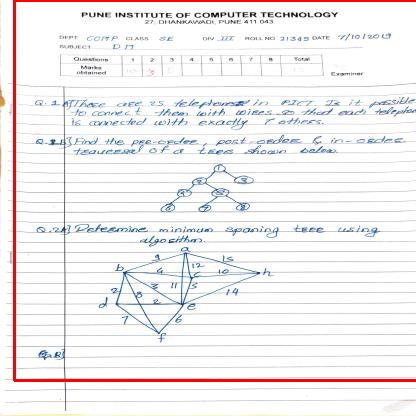 PUNE INSTITUTE OF COMPUTER TECHNOLOGY
27, DHANKAWADI, PUNE 411 043
DEPT COMP CLASS SE DIV III ROLL NO. 21345 DATE 7/10/2019
SUBJECT DM
Questions 1 2 3 4 5 6 7 8 Total
Marks obtained
Examiner
Q.1.A] There are 15 telephones in PICT. Is it possible
to connect them with wires so that each telephone
is connected with exactly 7 others.
B] Find the pre-order, post-order & in-order
traversal of a tree shown below.
1
2 3
4 5
6 7 8
Q.2A] Determine minimum spaning tree using
algorithm.
a
9 12 15
b 4 c 10 h
2 8 3 11 5 14
d 2 e
7 6
f